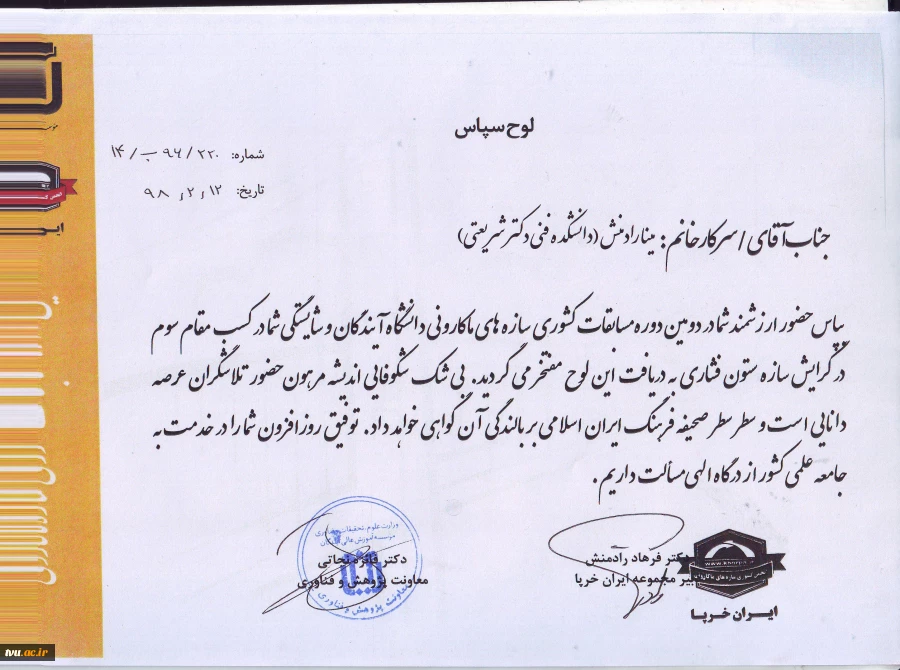 لوح سپاس
شماره: ۲۲۰ / ۹۶ ب / ۱۴
تاریخ: ۱۲ / ۲ / ۹۸
جناب آقای / سرکار خانم: مینا رادمنش (دانشکده فنی دکتر شریعتی)
سپاس حضور ارزشمند شما در دومین دوره مسابقات کشوری سازه های ماکارونی دانشگاه آیندگان و شایستگی شما در کسب مقام سوم
در گرایش سازه ستون فشاری به دریافت این لوح مفتخر می گردید. بی شک شکوفایی اندیشه مرهون حضور تلاشگران عرصه
دانایی است و سطر سطر صحیفه فرهنگ ایران اسلامی بر بالندگی آن گواهی خواهد داد. توفیق روز افزون شما را در خدمت به
جامعه علمی کشور از درگاه الهی مسالت داریم.
دکتر فرهاد رادمنش
دبیر مجموعه ایران خرپا
ایران خرپا
دکتر فائزه نجاتی
معاونت پژوهش و فناوری
وزارت علوم، تحقیقات و فناوری
موسسه آموزش عالی
معاونت پژوهش و فناوری
tvu.ac.ir